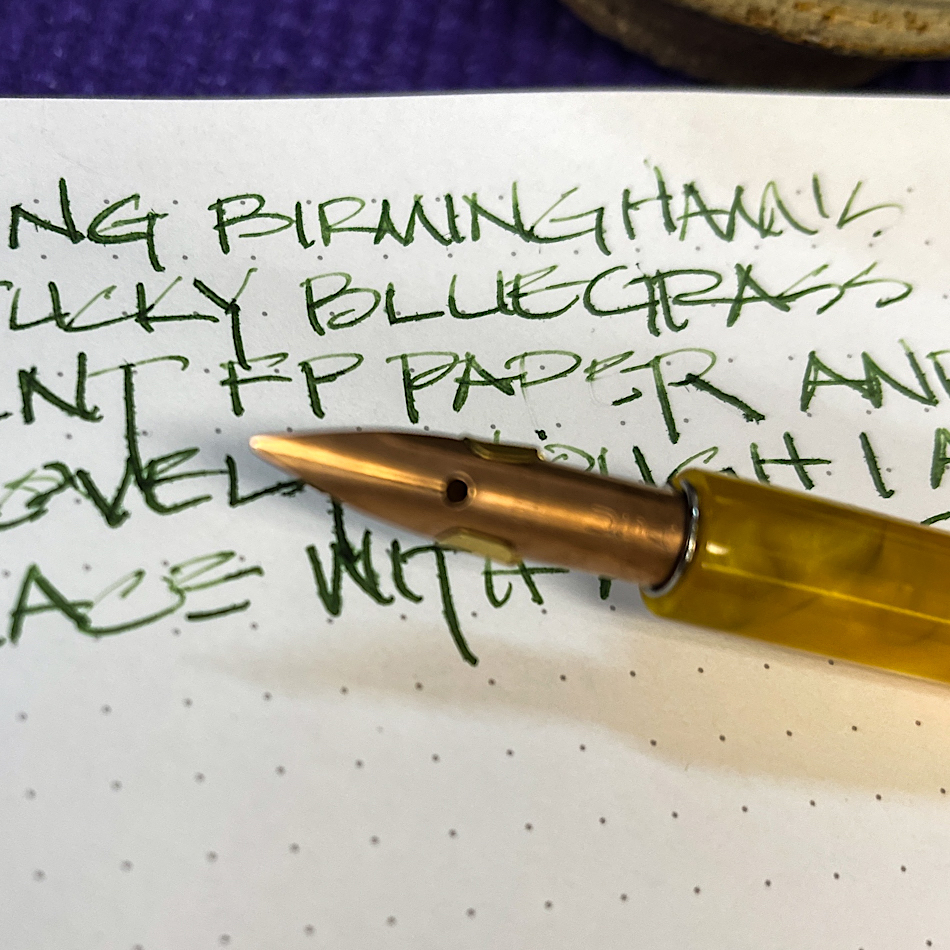 NG BIRMINGHAM'S
TUCKY BLUEGRASS
ENT FP PAPER AND
OVEL OUGH I A
LACE WITH